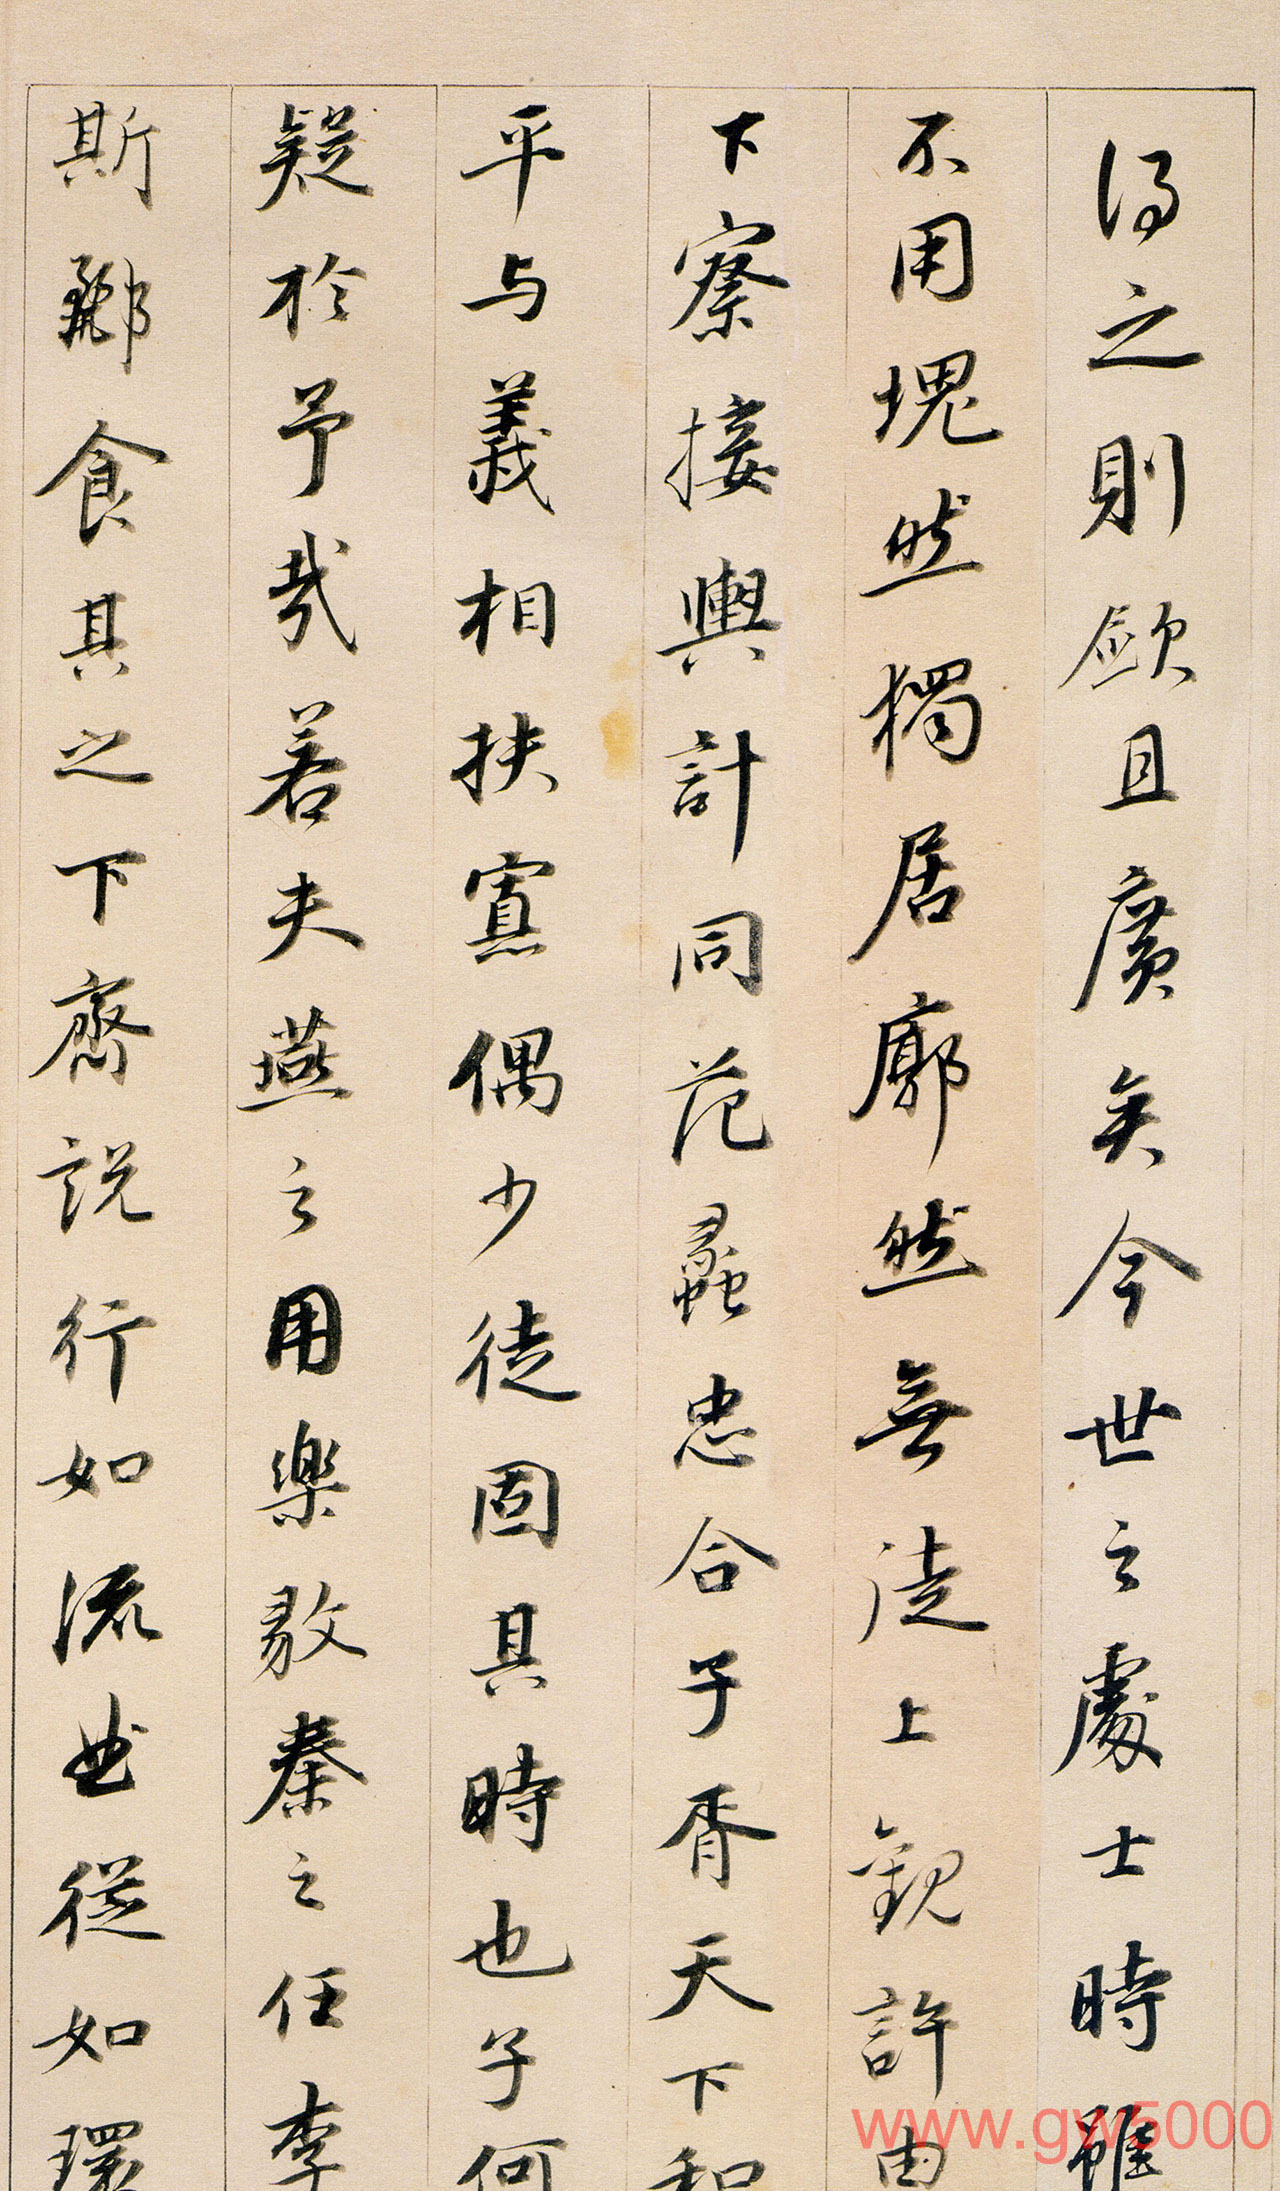 得之則欿且廣矣今世之處士時雖
不用塊然獨居廓然無徒上觀許由
下察接輿計同范蠡忠合子胥天下和
平与義相扶寡偶少徒固其時也子何
疑於予哉若夫燕之用樂毅秦之任李
斯酈食其之下齊說行如流曲從如環
www.gw5000